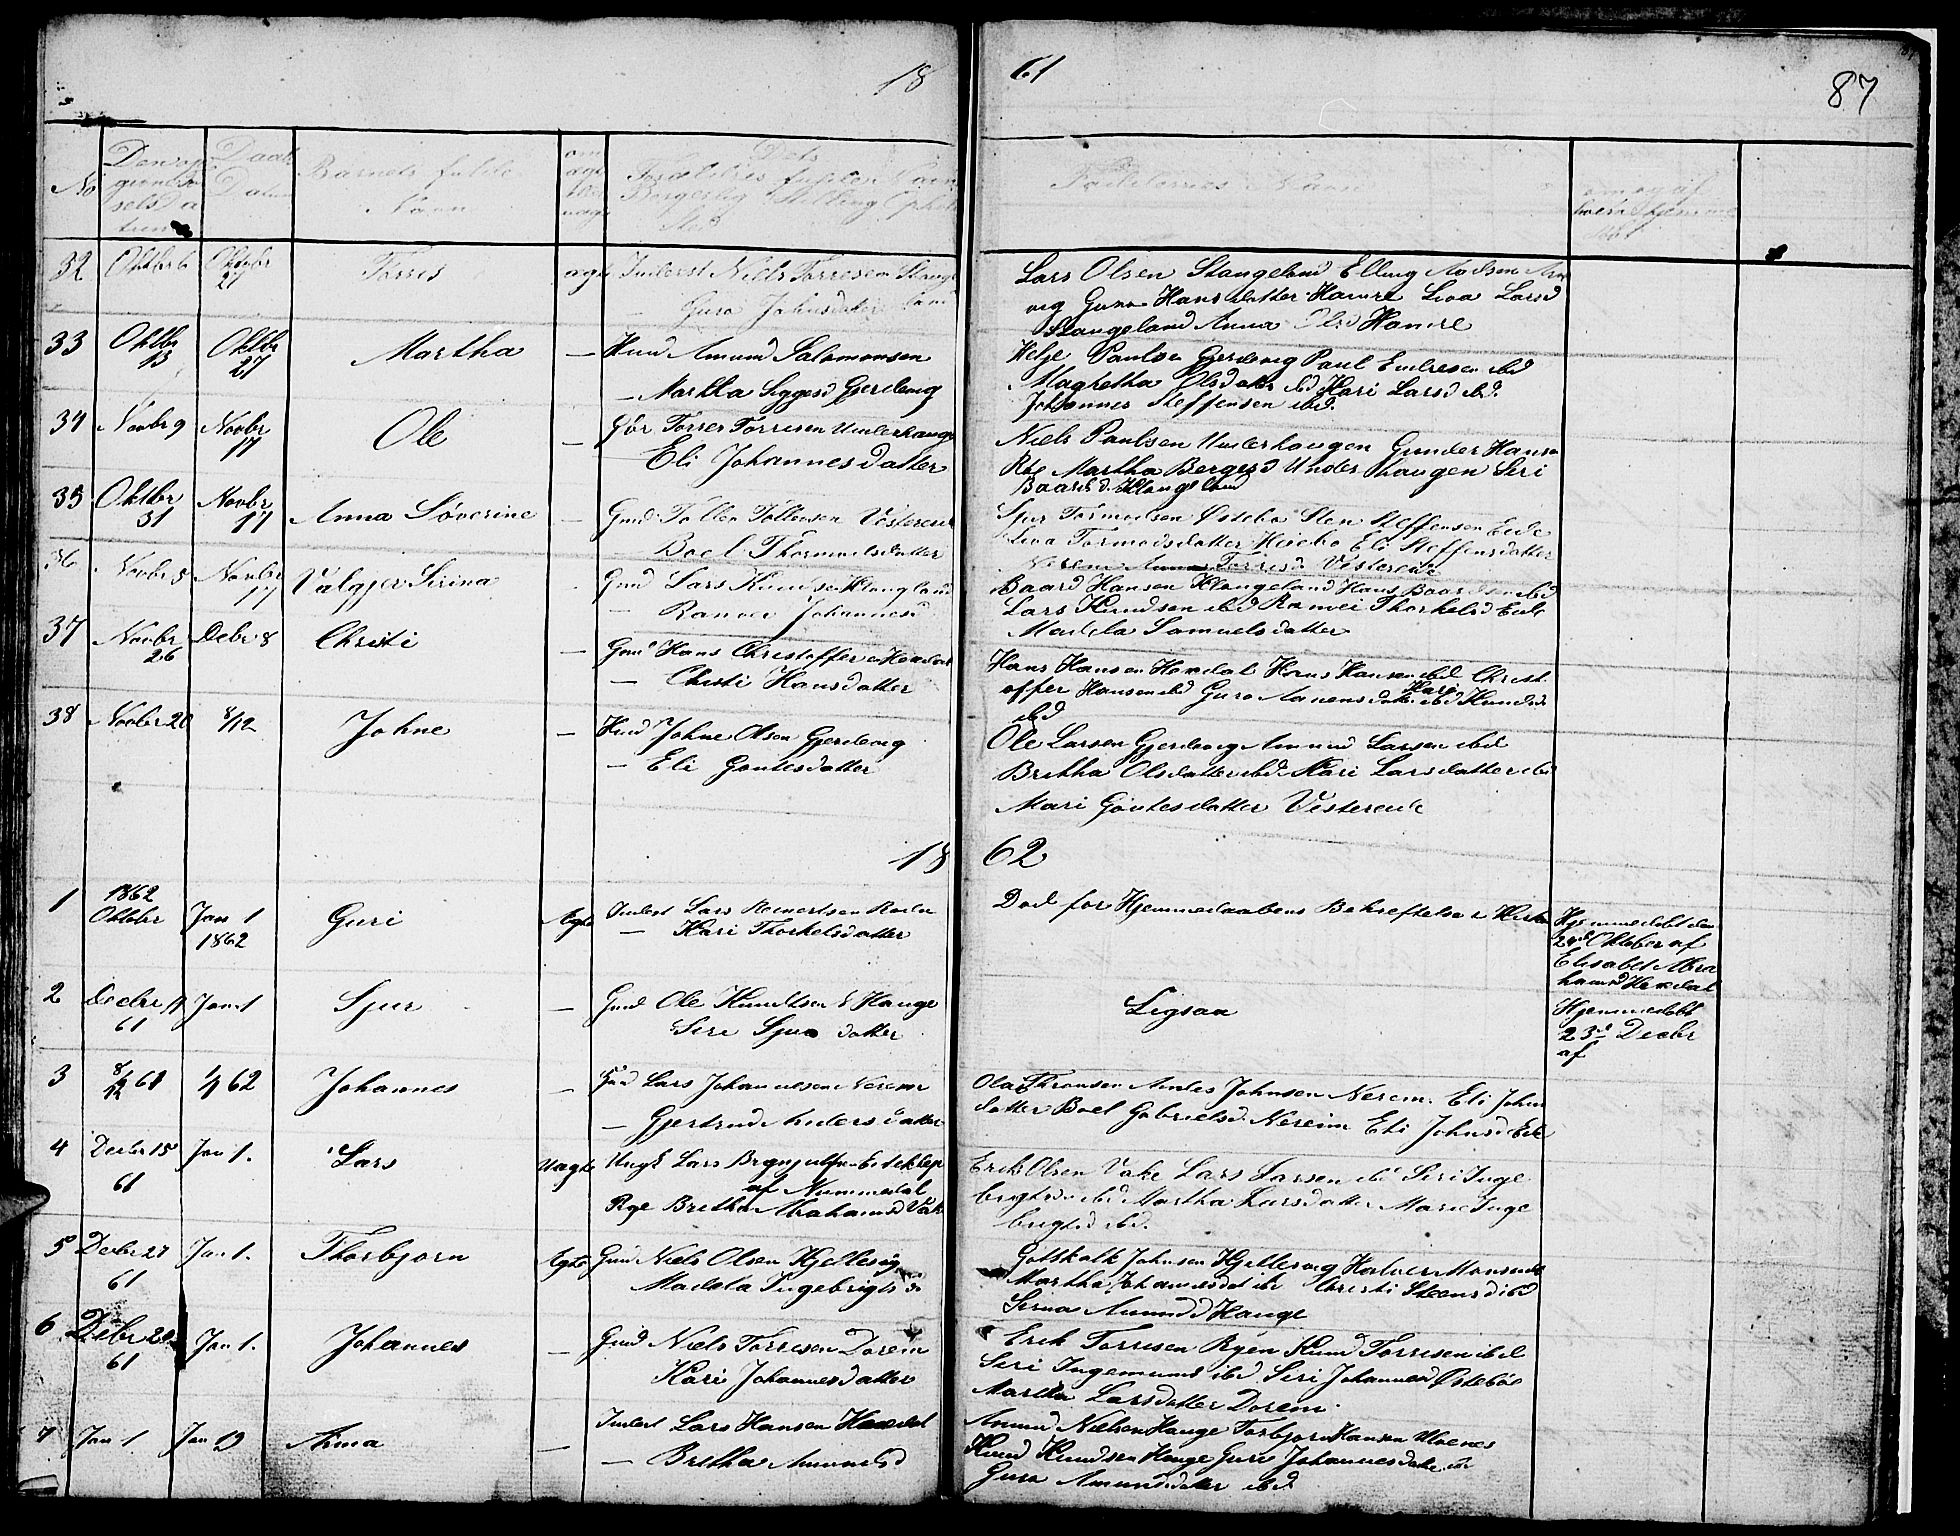 1861
87
No
Barnets fulde
Navn
Dets
Faddernes Navn
32 Oktbr 6 Oktobr 27 Torris ægte Inderst Niels Torresen
Gura Johnsdatter
Lars Olsen Stangeland Elling
Gura Hansdatter Hamre Liva Larsd
Stangeland Anna Olsd Hamre
33 Oktbr 13 Oktbr 27 Martha — Hmd Amund Salomonsen
— Martha Siggesd Gjerdevig
Helje Paulsen Gjerdevig Paul Endresen ibid
Magretha Olsdatter ibid Kari Larsd ibd.
Johannes Steffensen ibid.
34 Novbr 9 Novbr 17 Ole — Torres Torresen Underhaug
Eli Johannesdatter
Niels Paulsen Underhaugen Gunder Hansen
Martha Bergesd Underhaugen Siri
Baardsd. Klangeland
35 Oktbr 31 Novbr 17 Anna Søverine — Gmd Tollen Tollensen Vestereid
Boel Thormodsdatter
Sjur Tormodsen Østebø Sten Steffensen Eide
Liva Tormodsdatter Eli Steffensdatter
Nerem Anna Torresd Vestereide
36 Novbr 5 Novbr 17 Valgjer Sirina — Gmd Lars Knudsen Klangeland
— Ranvei Johannesd
Baard Hansen Klangeland Hans Baardsen ibd
Lars Knudsen ibd Ranvei Thorkelsd Eide
Madela Samuelsdatter
37 Novbr 26 Debr 8 Christi — Gmd Hans Christoffersen Hoxdal
— Christi Hansdatter
Hans Hansen Hoxdal Hans Hansen ibd Christ
offer Hansen ibd Gura Monensdatter ibd Kari Knudsd
ibd
38 Novbr 20 8/12 Johne — Hmd Johne Olsen Gjerdevig
— Eli Goutesdatter
Ole Larsen Gjerdevig Amund Larsen ibid
Britha Olsdatter ibid Kari Larsdatter ibid
Mari Goutesdatter Vestereide
1862
1 1862 Oktober Jan 1 1862 Guri Ægte Inderst Lars Reinertsen
— Kari Thorkelsdatter
Død før Hjemmedaabens Bekreftelse i Kirken
Hjemmedøbt den
Oktober af
Elisabet Abra
hamsd Hoxdal
2 Decbr 61 Jan 1 Sjur — Gmd Ole Knudtsen Hauge
Siri Sjursdatter
Ligsaa
Hjemmedøbt
23d Decbr
af
3 8/12 61 1/1 62 Johannes — Gmd Lars Johannesen Nereim
— Gjertrud Andersdatter
Ola Thronsen Andes Johnsen Nereim Eli Johns
datter Boel Gabrielsd Nereim Eli Johnsd Eide
4 Decbr 15 61 Jan 1. Lars Uægte Ungk Lars Brynjulfsen
af Nummedal
Pige Britha Abrahamsd Vake
Erik Olsen Vake Lars Larsen ibd Siri Inge
brigtsd ibd Martha Larsdatter Mari Inge
brigtsd ibd.
5 Decbr 27 61 Jan 1. Thorbjørn Ægte Gmd Niels Olsen Hjellevig
Madela Ingebrigtsd
Gotskalk Johnsen Hjellevig Halvor Monsen
Martha Johannesdat ibd Christi Steensd ibd
Serina Amundsd Hauge
6 Debr 61 Jan 1. Johannes — Gmd Niels Torresen Dorem
Kari Johannesdatter
Erik Torresen Ryen Knud Torresen ibd
Siri Ingemunds ibd Siri Johannesd Østebøe
Martha Larsdatter Dorem.
7 Jan 1 Jan 19 Anna — Inderst Lars Hansen Hoxdal
— Britha Amundsd
Amund Nielsen Hauge Torbjorn Hansen
Knud Knudsen Hauge Guri Johannesdatter ibd
Gura Amundsdatter ibid